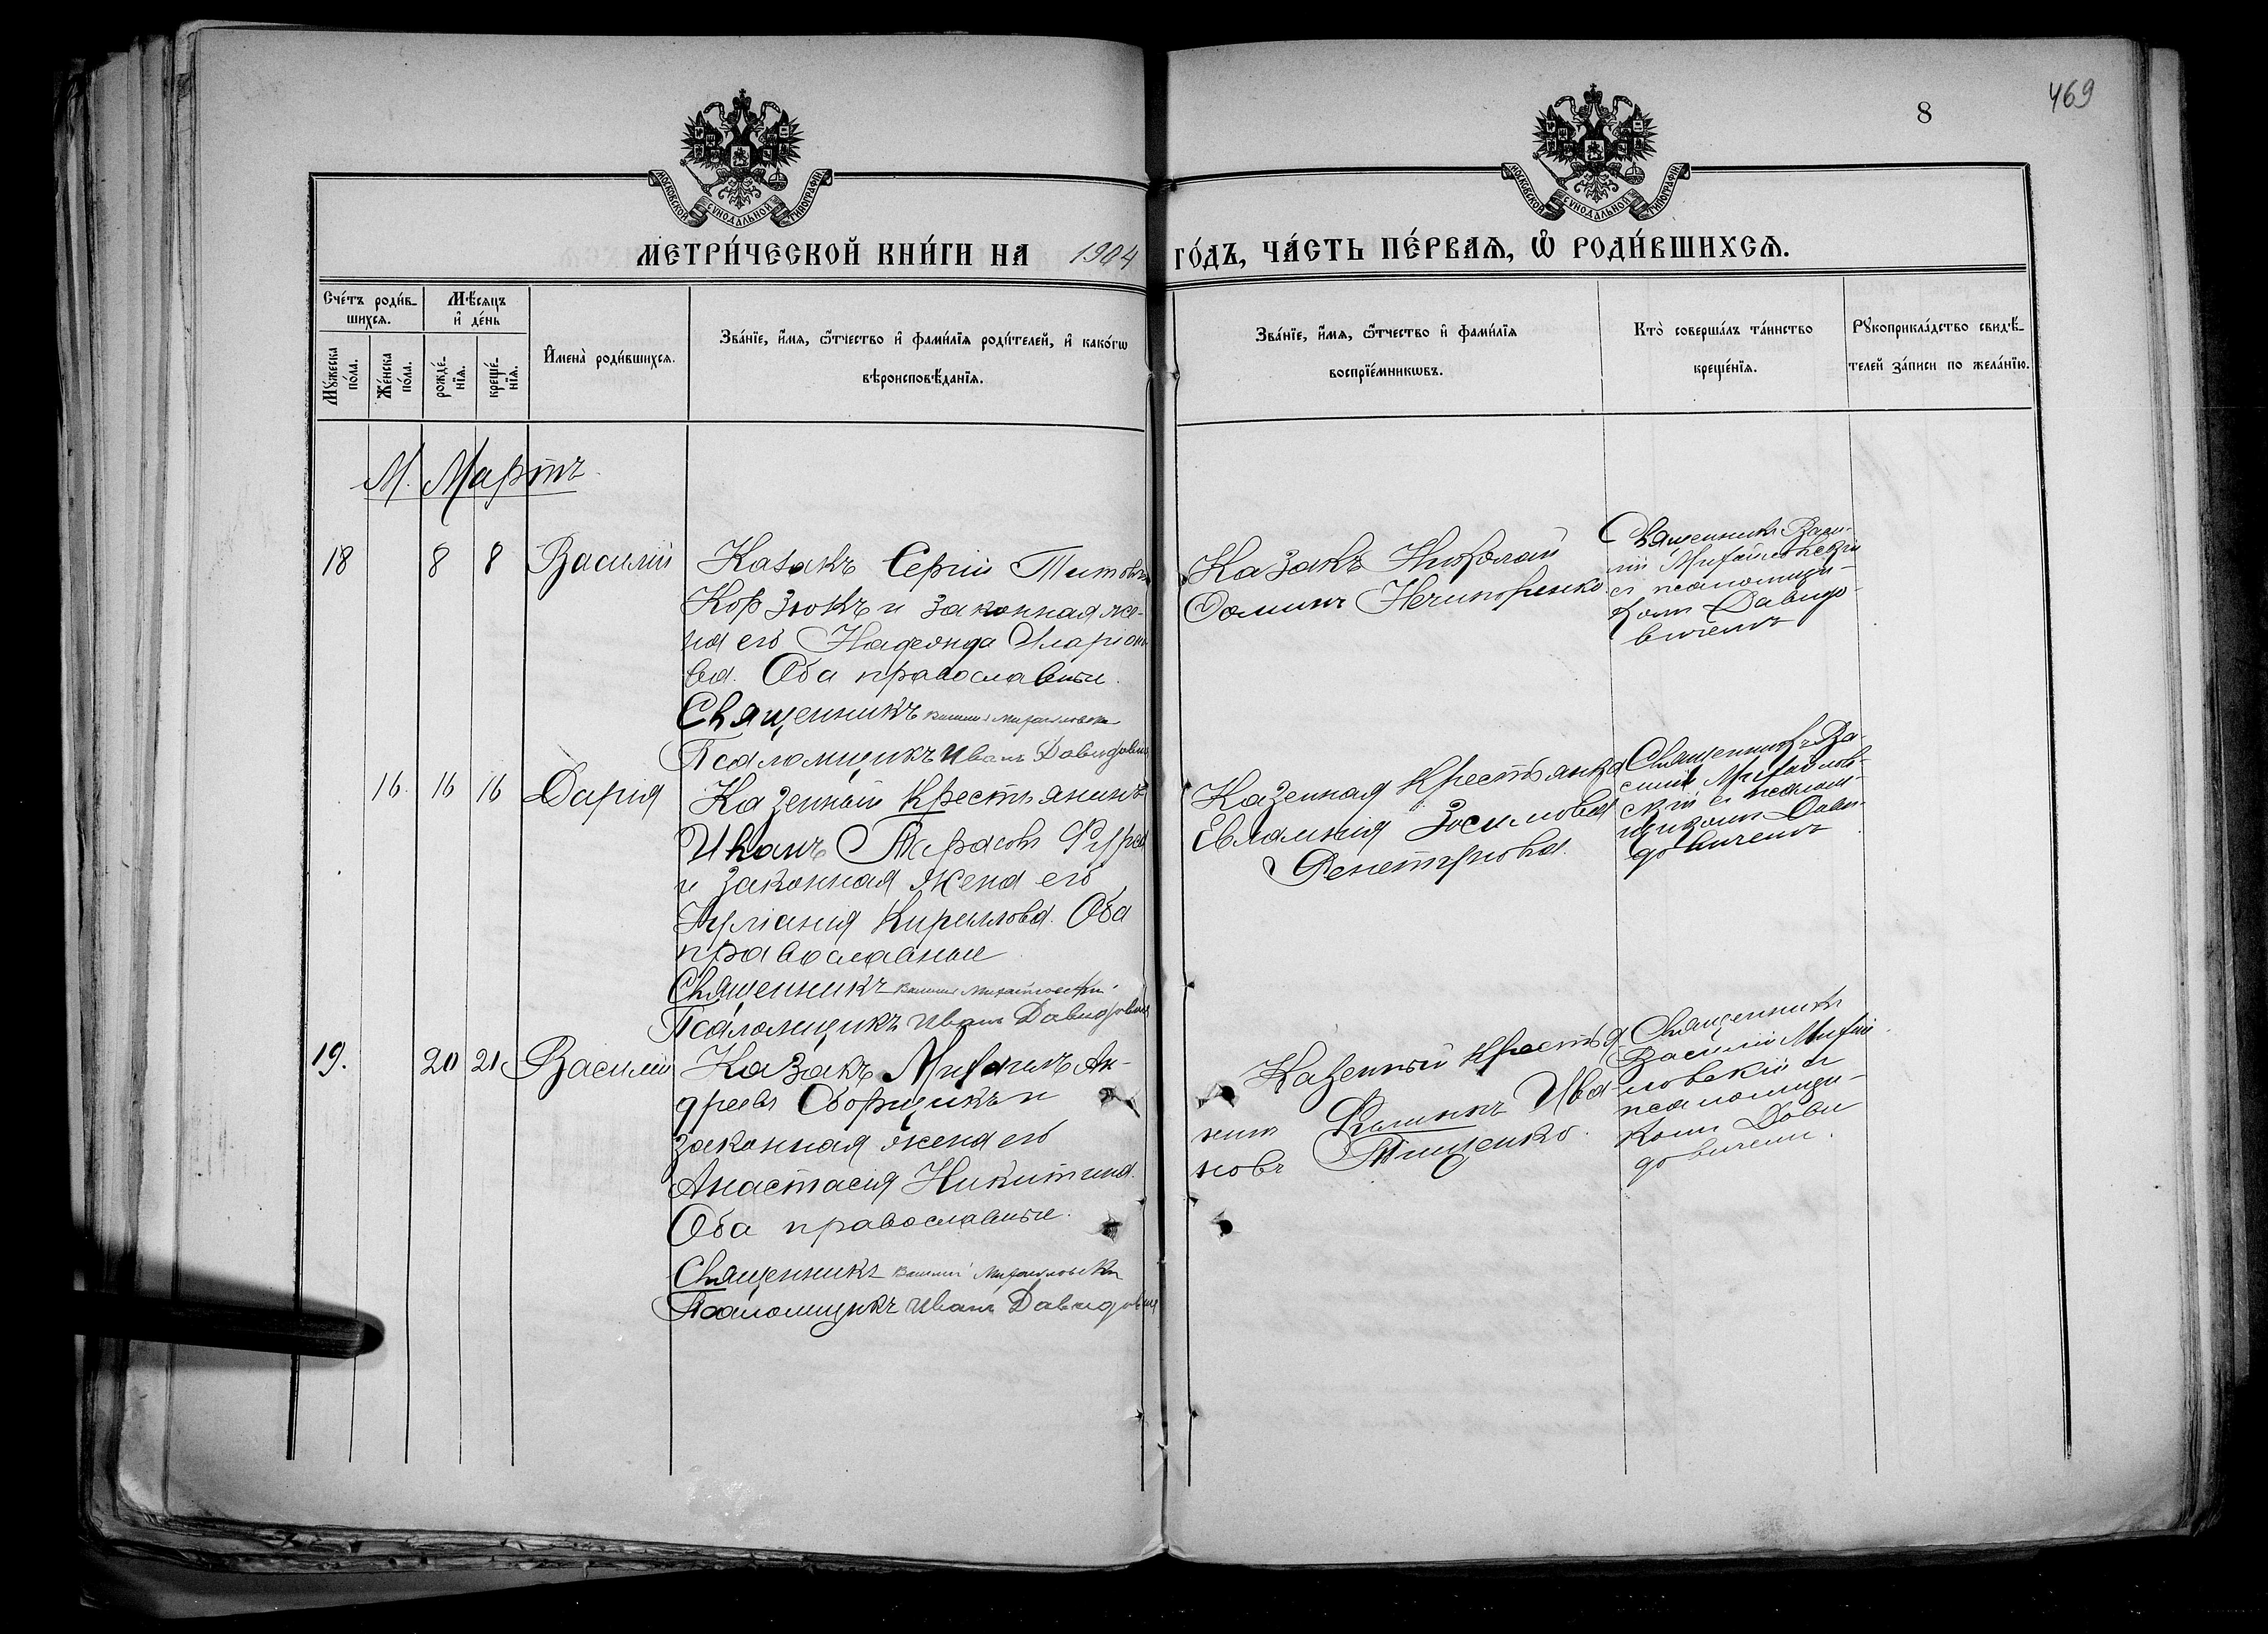 469
8
МОСКОВСКОЙ СѴНОДАЛЬНОЙ ТИПОГРАФІИ
МОСКОВСКОЙ СѴНОДАЛЬНОЙ ТИПОГРАФІИ
МЕТРИ́ЧЕСКОЙ КНИ́ГИ НА 1904 ГО́ДЪ, ЧА́СТЬ ПЕ́РВАѦ, Ѡ҆ РОДИ́ВШИХСѦ.
Сче́тъ роди́в-
шихсѧ.
Мꙋ́жеска
по́ла.
Же́нска
по́ла.
Мѣ́сѧцъ
и҆ де́нь
рожде́-
нїѧ.
креще́-
нїѧ.
И҆мена̀ роди́вшихсѧ.
Зва́нїе, и҆́мѧ, ѻ҆́тчество и҆ фами́лїѧ роди́телей, и҆ како́гѡ
вѣроисповѣ́данїѧ.
Зва́нїе, и҆́мѧ, ѻ҆́тчество и҆ фами́лїѧ
воспрїе́мникѡвъ.
Кто̀ соверша́лъ та́инство
креще́нїѧ.
Рꙋкоприкла́дство свидѣ́-
телей за́писи по жела́нїю.
М. Мартъ
18 8 8 Василій
Казакъ Сергій Титовъ
Корзюкъ и законная же-
на его Надежда Иларіоно-
ва. Оба православные.
Священникъ Василій Михайловскій
Псаломщикъ Иванъ Давидовичъ
Казакъ Николай
Фоминъ Нечипоренко.
Священникъ Васи-
лій Михайловскій
съ псаломщи-
комъ Давидо-
вичемъ
16. 16 16 Дарія
Казенный Крестьянинъ
Иванъ Тарасовъ Фурса
и законная жена его
Іуліанія Кириллова. Оба
православные
Священникъ Василій Михайловскій
Псаломщикъ Иванъ Давидовичъ
Казенная Крестьянка
Евлампія Зосимова
Священникъ Ва-
силій Михайлов-
скій съ псалом-
щикомъ Дави-
довичемъ
19. 20 21 Василій
Казакъ Михаилъ Ан-
дреевъ Сборщикъ и
законная жена его
Анастасія Никитина.
Оба православные.
Священникъ Василій Михайловскій
Псаломщикъ Иванъ Давидовичъ
Казенный Крестья-
нинъ Филиппъ Ива-
новъ Тищенко.
Священникъ
Василій Михай-
ловскій съ
псаломщи-
комъ Дави
довичемъ.